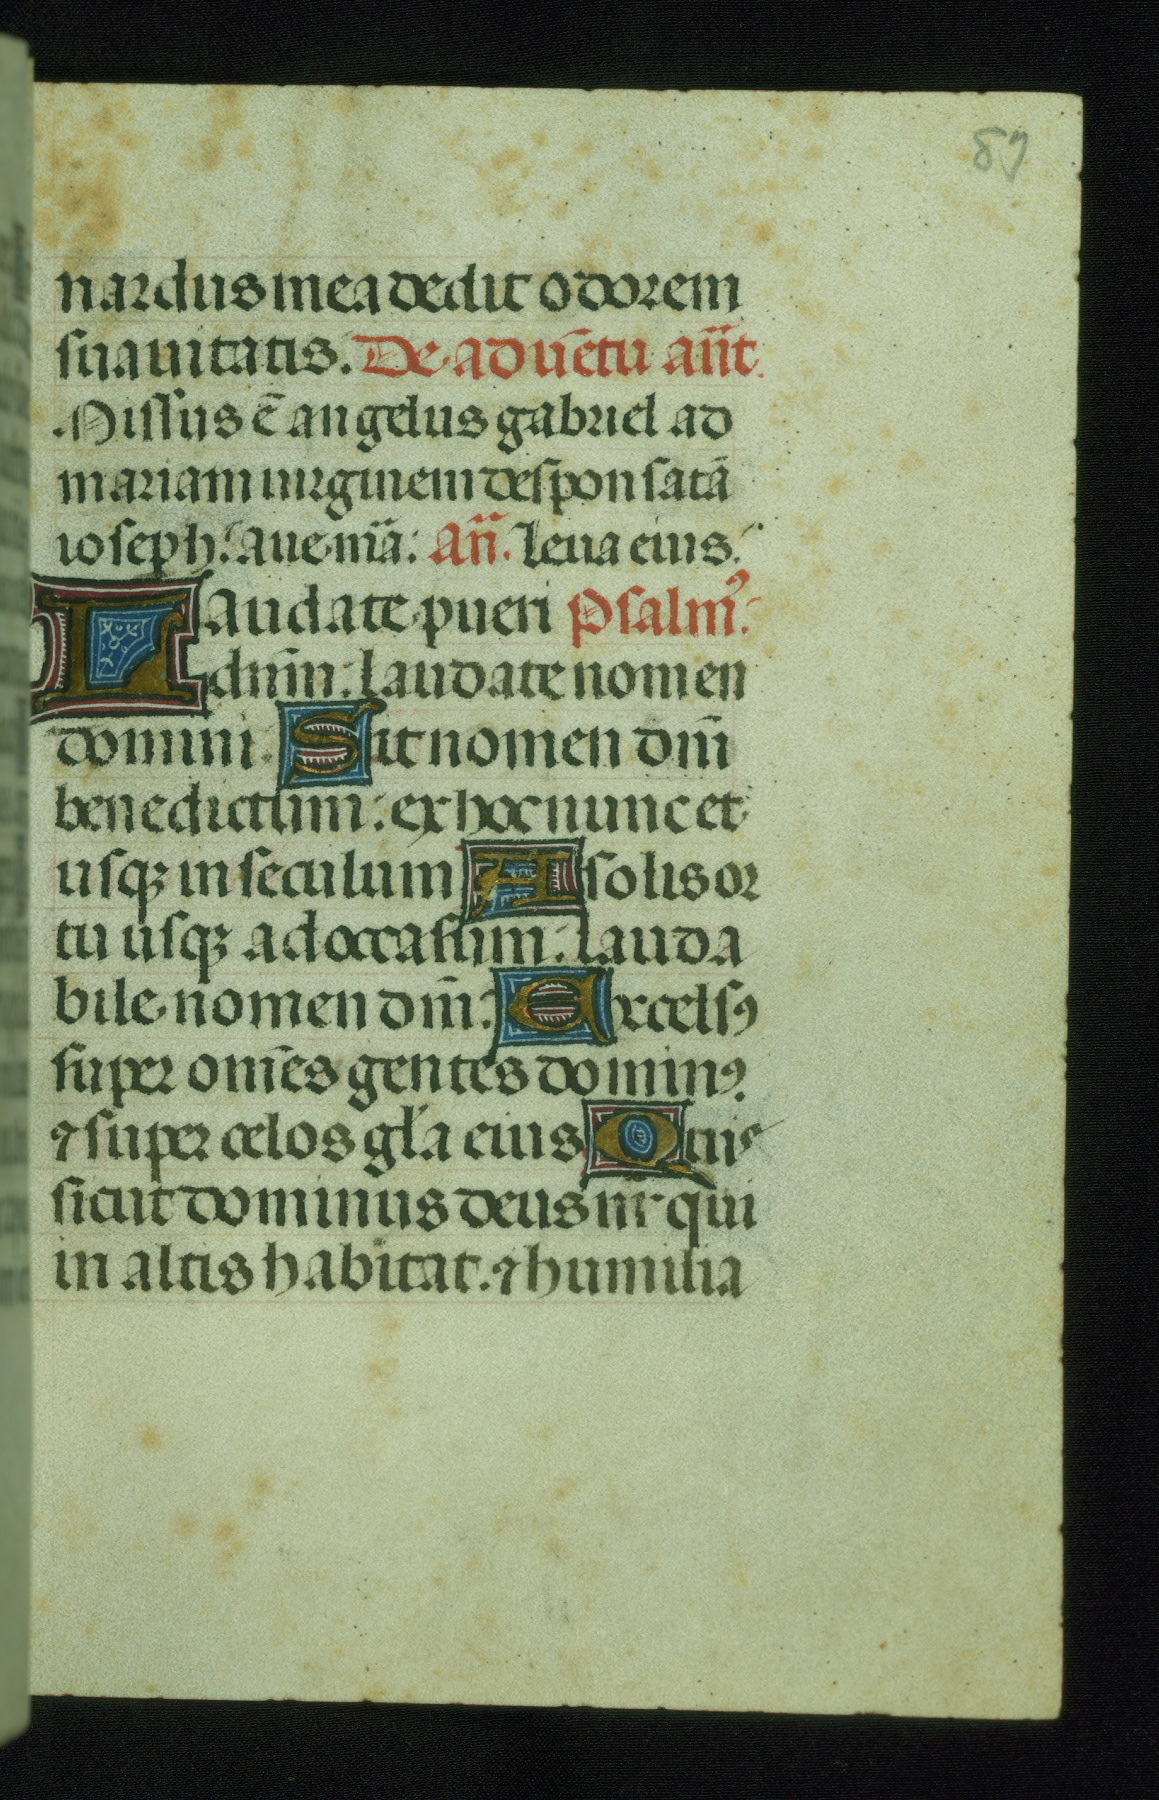 89
nardus mea dedit odorem
suauitatis. De aduētu an̄t.
Missus ē angelus gabriel ad
mariam uirginem desponsatā
ioseph. aue mīa. An̄. Leua eius.
Laudate pueri Psalmꝰ.
dn̄m: laudate nomen
domini. Sit nomen dn̄i
benedictum: ex hoc nunc et
usqꝫ in seculum A solis or
tu usqꝫ ad occasum: lauda
bile nomen dn̄i: Excelsꝰ
super om̄es gentes dominꝰ.
⁊ super celos gl̄a eius Quis
sicut dominus deus nr̄ qui
in altis habitat. ⁊ humilia